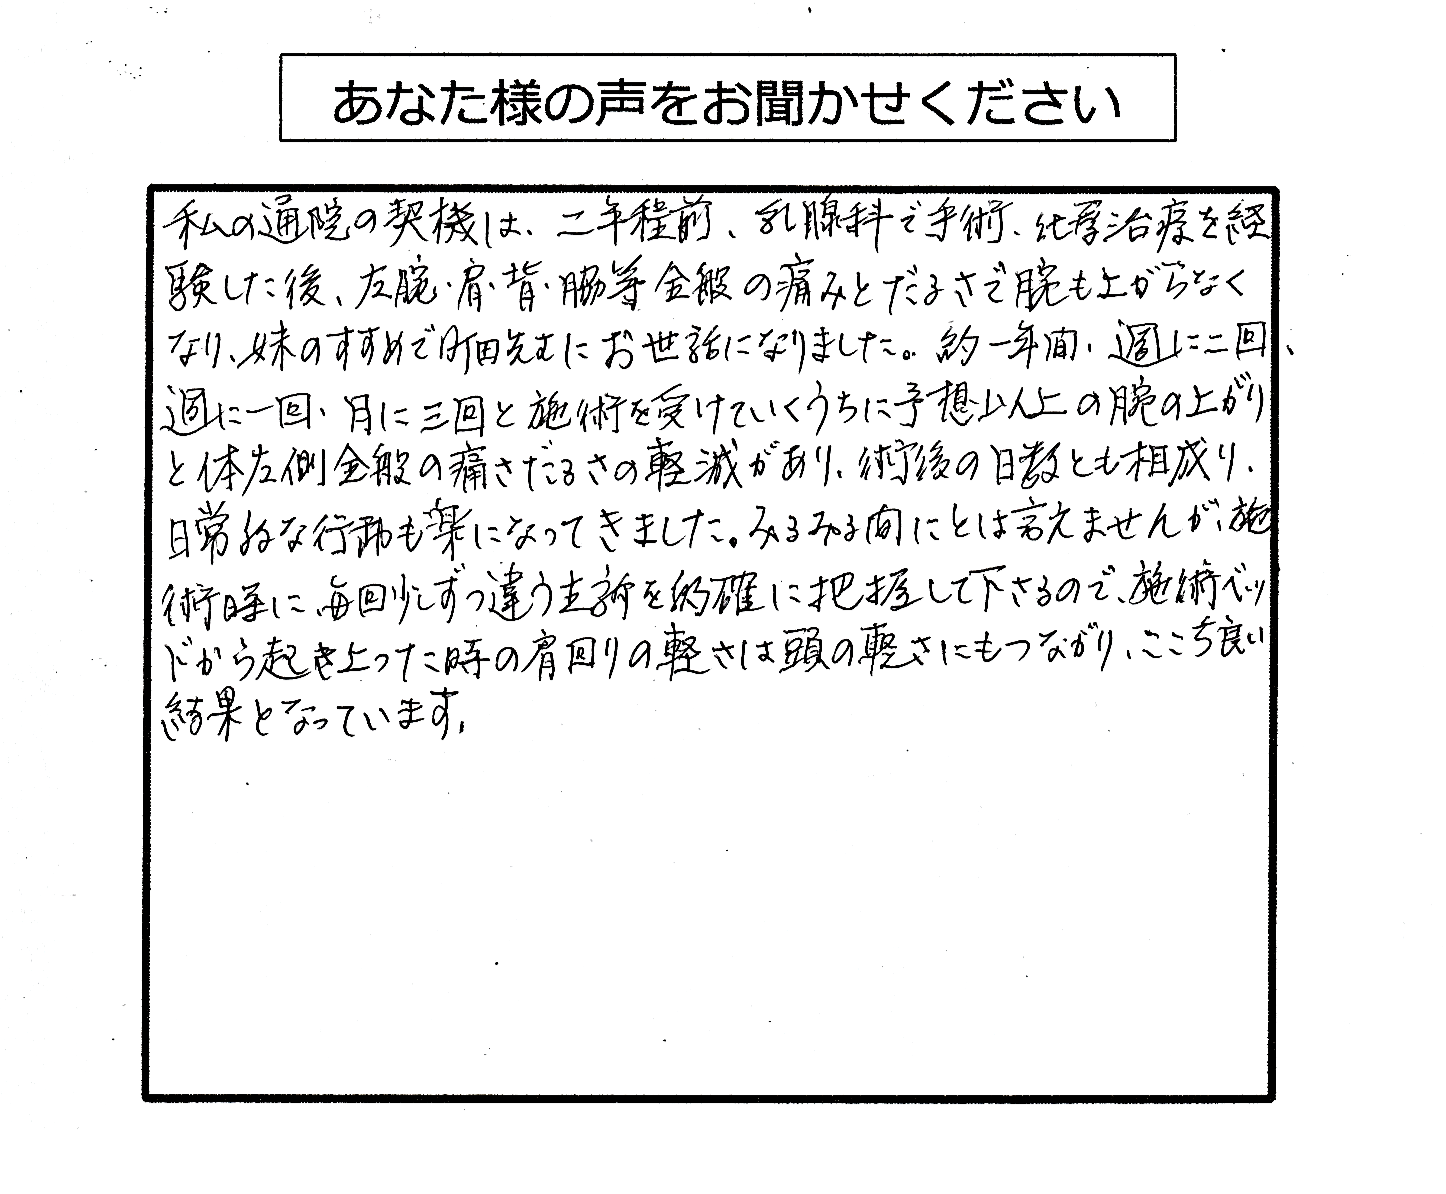 あなた様の声をお聞かせください
私の通院の契機は、二年程前、乳腺科で手術、化学治療を経
験した後、左腕・肩・背・脇等全般の痛みとだるさで腕も上がらなく
なり、妹のすすめで町田先生にお世話になりました。約一年間、週に二回、
週に一回、月に三回と施術を受けていくうちに予想以上の腕の上がり
と体左側全般の痛さだるさの軽減があり、術後の日数とも相成り、
日常的な行動も楽になってきました。みるみる間にとは言えませんが、施
術時に、毎回少しずつ違う主訴を的確に把握して下さるので、施術ベッ
ドから起き上った時の肩回りの軽さは頭の軽さにもつながり、ここち良い
結果となっています。